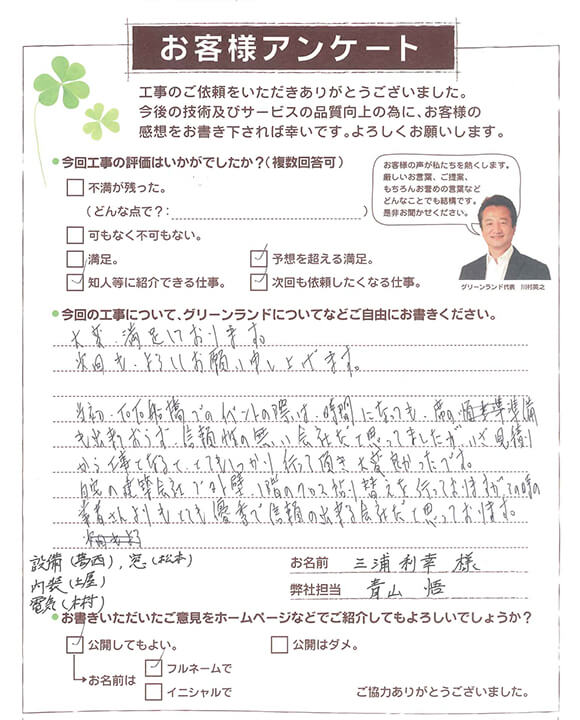 お客様アンケート
工事のご依頼をいただきありがとうございました。
今後の技術及びサービスの品質向上の為に、お客様の
感想をお書き下されば幸いです。よろしくお願いします。
●今回工事の評価はいかがでしたか?(複数回答可)
不満が残った。
(どんな点で?: )
可もなく不可もない。
満足。
予想を超える満足。
知人等に紹介できる仕事。
次回も依頼したくなる仕事。
お客様の声が私たちを熱くします。
厳しいお言葉、ご提案、
もちろんお誉めの言葉など
どんなことでも結構です。
是非お聞かせください。
グリーンランド代表 川村英之
●今回の工事について、グリーンランドについてなどご自由にお書きください。
大変満足しております。
次回も、よろしくお願い申し上げます。
当初、 船橋でのイベントの際は、時間になっても、席の 準備
も出来ておらず、信頼性の無い会社だと思ってましたが、いざ見積り
から工事となると、とてもしっかり行って頂き大変良かったです。
自宅の建築会社で外壁、1階のクロス貼り替えを行っておりますが、その時の
業者さんよりもとても優秀で信頼の出来る会社だと思っております。
設備(葛西)、窓(松本)
内装(土屋)
電気(木村)
お名前 三浦利幸 様
弊社担当 青山 悟
●お書きいただいたご意見をホームページなどでご紹介してもよろしいでしょうか?
公開してもよい。
公開はダメ。
お名前は
フルネームで
イニシャルで
ご協力ありがとうございました。